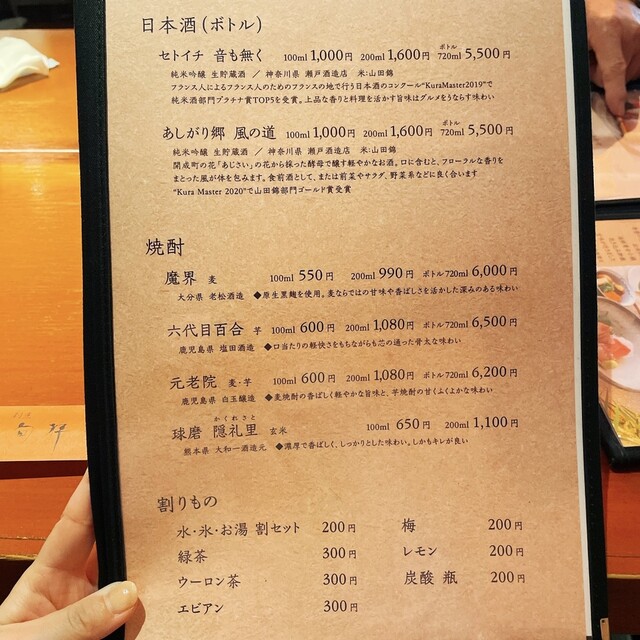 日本酒(ボトル)
セトイチ 音も無く 100ml 1,000円 200ml 1,600円 ボトル 720ml 5,500円
純米吟醸 生貯蔵酒 / 神奈川県 瀬戸酒造店 米:山田錦
フランス人によるフランス人のためのフランスの地で行う日本酒のコンクール“KuraMaster2019”で
純米酒部門プラチナ賞TOP5を受賞。上品な香りと料理を活かす旨味はグルメをうならす味わい
あしがり郷 風の道 100ml 1,000円 200ml 1,600円 ボトル 720ml 5,500円
純米吟醸 生貯蔵酒 / 神奈川県 瀬戸酒造店 米:山田錦
開成町の花「あじさい」の花から採った酵母で醸す軽やかなお酒。口に含むと、フローラルな香りを
まとった風が体を包みます。食前酒として、または前菜やサラダ、野菜系などに良く合います
“Kura Master 2020”で山田錦部門ゴールド賞受賞
焼酎
魔界 麦 100ml 550円 200ml 990円 ボトル720ml 6,000円
大分県 老松酒造 ◆原生黒麹を使用。麦ならではの甘味や香ばしさを活かした深みのある味わい
六代目百合 芋 100ml 600円 200ml 1,080円 ボトル720ml 6,500円
鹿児島県 塩田酒造 ◆口当たりの軽快さをもちながらも芯の通った骨太な味わい
元老院 麦・芋 100ml 600円 200ml 1,080円 ボトル720ml 6,200円
鹿児島県 白玉醸造 ◆麦焼酎の香ばしく軽やかな旨味と、芋焼酎の甘くふくよかな味わい
かくれざと
球磨 隠礼里 玄米 100ml 650円 200ml 1,100円
熊本県 大和一酒造元 ◆濃厚で香ばしく、しっかりとした味わい。しかもキレが良い
割りもの
水・氷・お湯 割セット 200円 梅 200円
緑茶 300円 レモン 200円
ウーロン茶 300円 炭酸 瓶 200円
エビアン 300円